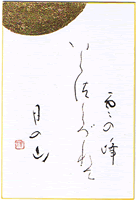 雲の峰
いくつくづれて
月の山